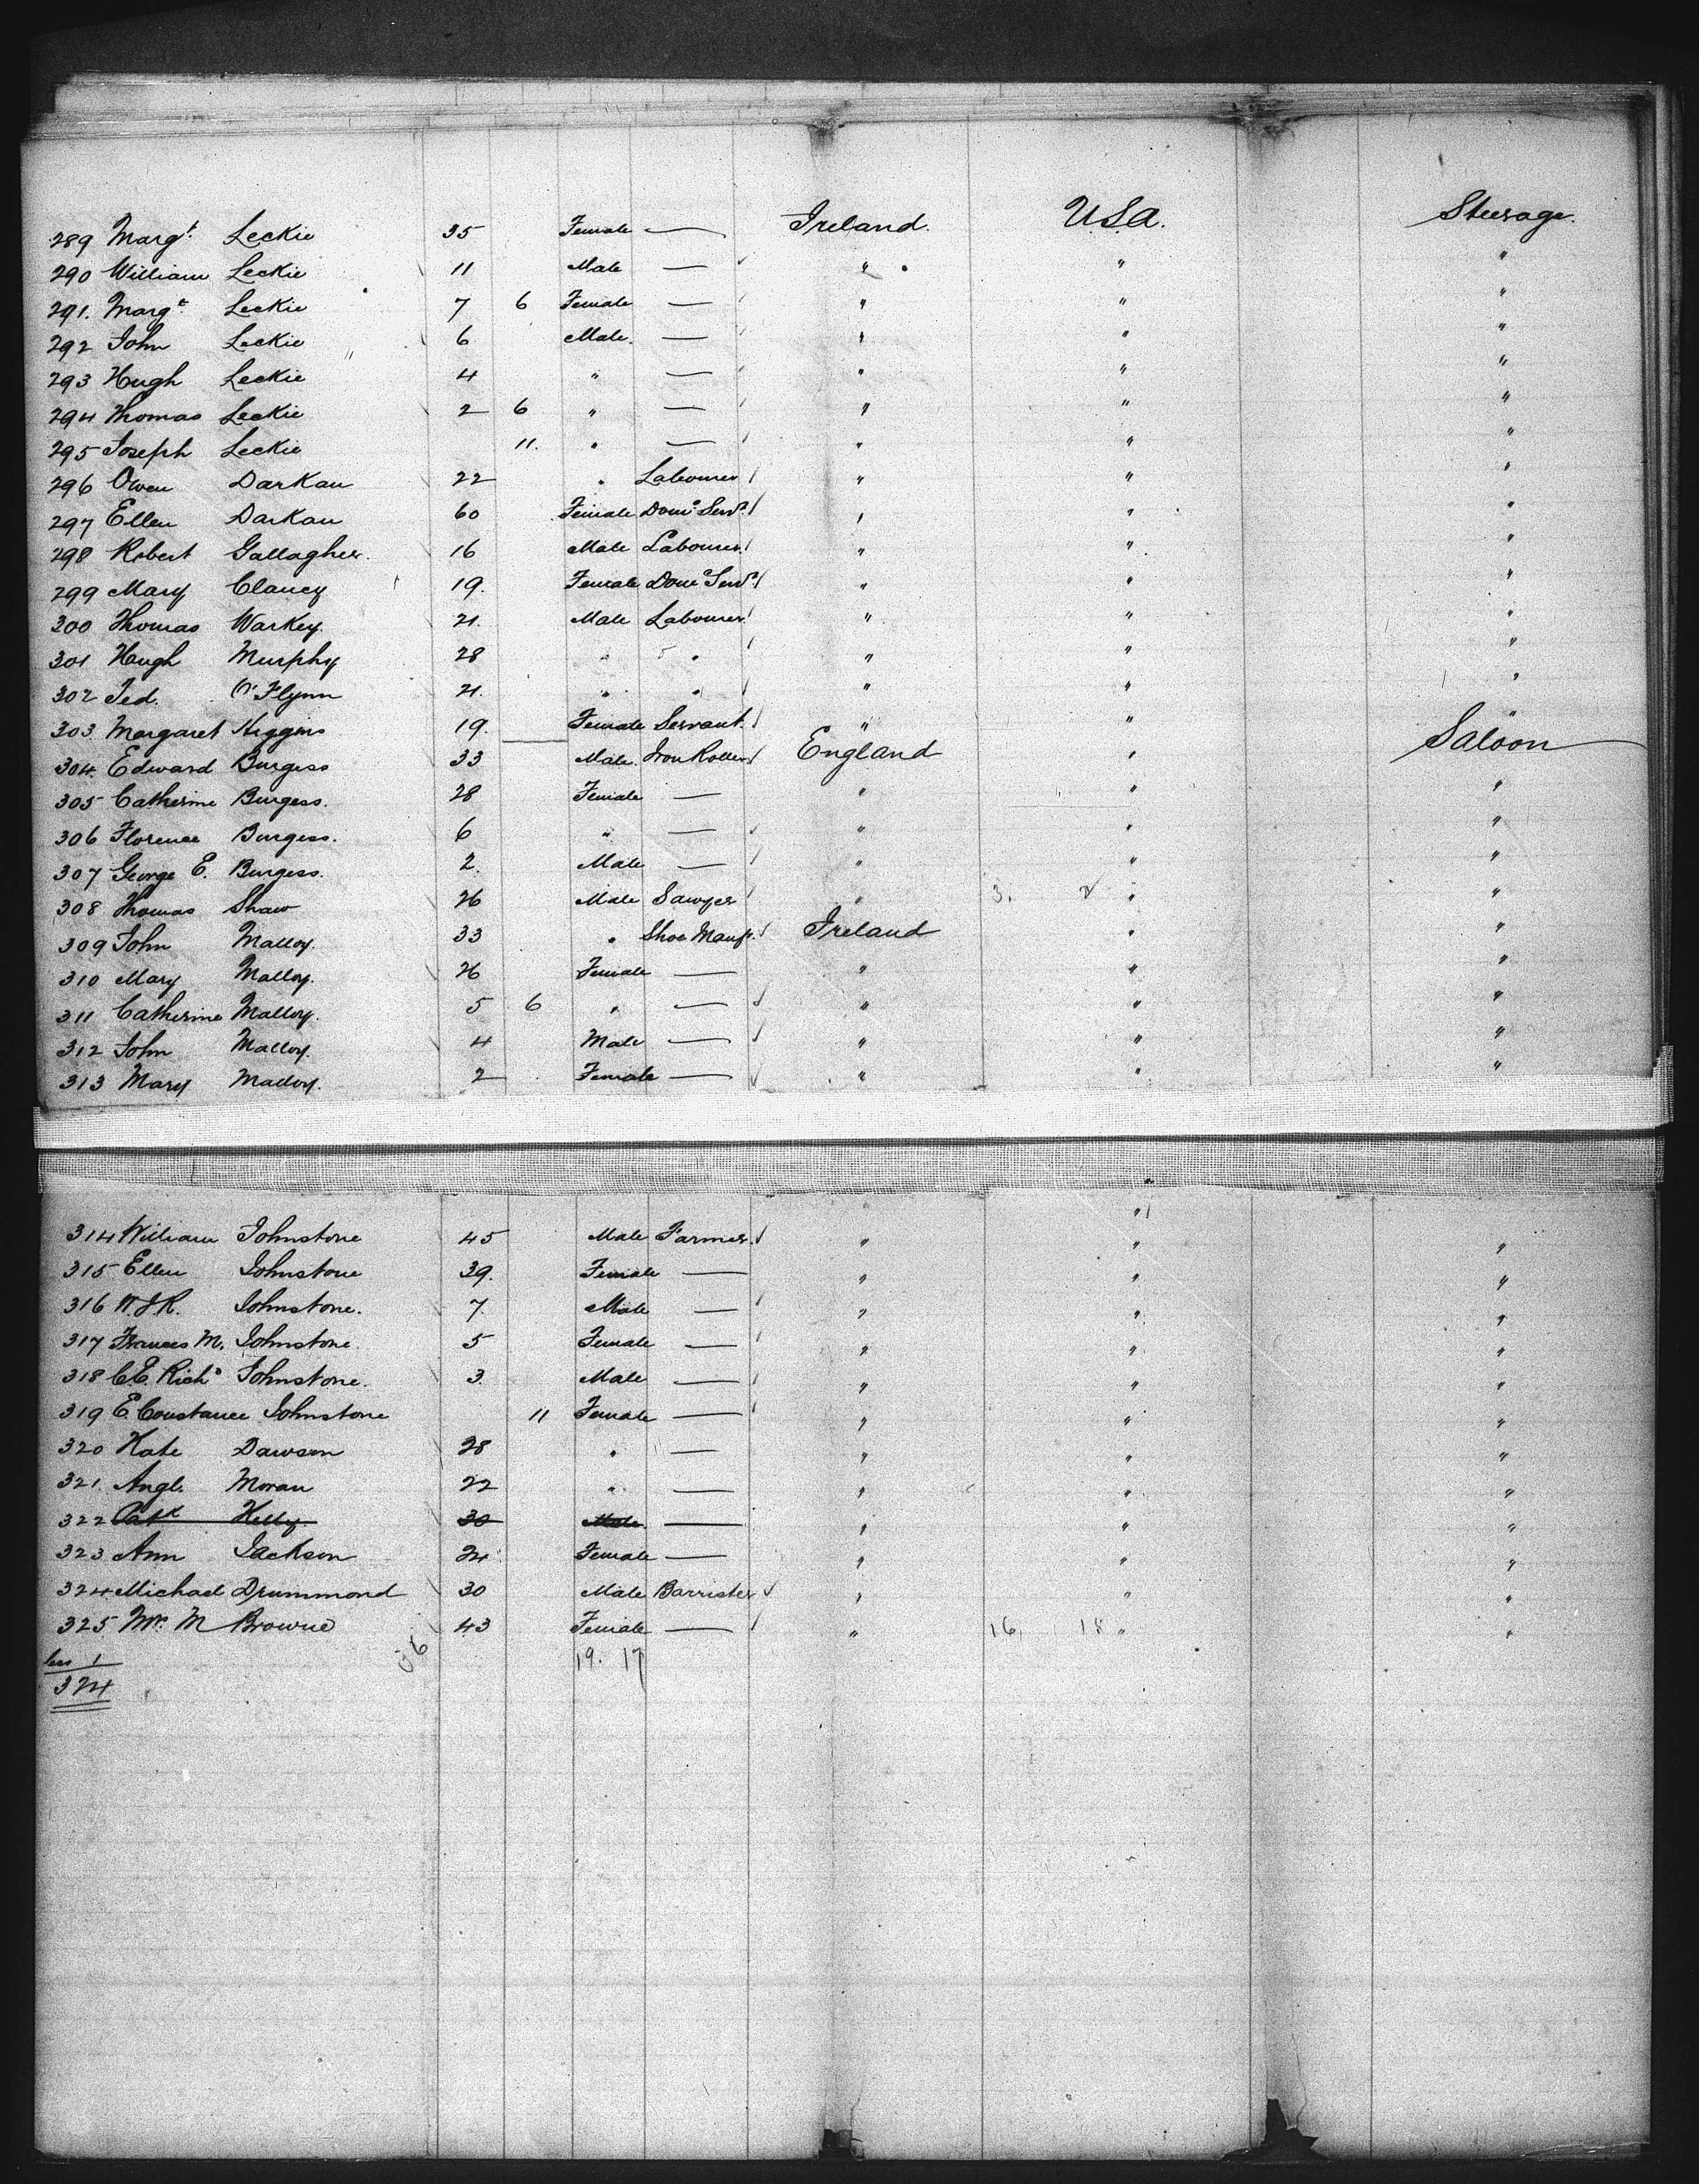 289 Margt. Leckie 35 Female — Ireland. USA. Steerage.
290 William Leckie 11 Male — " " "
291. Margt. Leckie 7 6 Female — " " "
292 John Leckie 6 Male. — " " "
293 Hugh Leckie 4 " — " " "
294 Thomas Leckie 2 6 " — " " "
295 Joseph Leckie 11. " — " " "
296 Owen Darkan 22 " Labourer " " "
297 Ellen Darkan 60 Female Domc Servt. " " "
298 Robert Gallagher. 16 Male Labourer " " "
299 Mary Clancy 19. Female Domc Servt. " " "
300 Thomas Warkey. 21. Male Labourer " " "
301 Hugh Murphy 28 " " " " "
302 Ted. O'Flynn 21. " " " " "
303. Margaret Higgins 19. Female Servant. " " "
304. Edward Burgess 33 Male. Iron Roller England " Saloon
305 Catherine Burgess. 28 Female — " " "
306 Florence Burgess. 6 " — " " "
307 George E. Burgess. 2. Male — " " "
308 Thomas Shaw 26 Male Sawyer " 3. 2 " "
309 John Malloy. 33 " Shoe Manfr. Ireland " "
310 Mary Malloy. 26 Female — " " "
311 Catherine Malloy. 5 6 " — " " "
312 John Malloy. 4 Male — " " "
313 Mary Malloy. 2 Female — " " "
314 William Johnstone 45 Male Farmer. " " "
315 Ellen Johnstone 39. Female — " " "
316 W.J.R. Johnstone. 7. Male — " " "
317 Frances M. Johnstone. 5 Female — " " "
318 C.E. Richd Johnstone. 3. Male — " " "
319 E. Constance Johnstone 11 Female — " " "
320 Kate Dawson 28 " — " " "
321. Angl. Moran 22 " — " " "
322 Patk Kelly. 30 Male. — " " "
323 Ann Jackson 24 Female — " " "
324. Michael Drummond 30 Male Barrister " " "
325 Mrs. M Browne 43 Female — " 16. 18 " "
less 1 19. 17
324